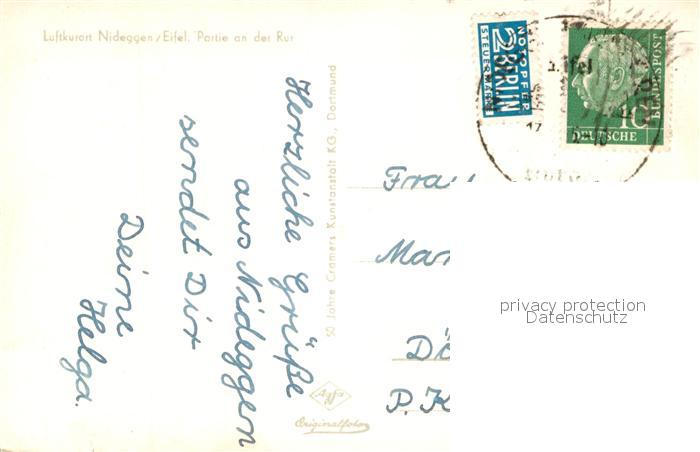 Luftkurort Nideggen/Eifel, Partie an der Rur
NOTOPFER
2 BERLIN
STEUERMARKE
10
DEUTSCHE
BUNDESPOST
ifel
17
Herzliche Grüße
aus Nideggen
sendet Dir
Deine
Helga.
50 Jahre Cramers Kunstanstalt KG., Dortmund
Agfa
Originalfoto
Frau
Mar
Dü
P. K
privacy protection
Datenschutz